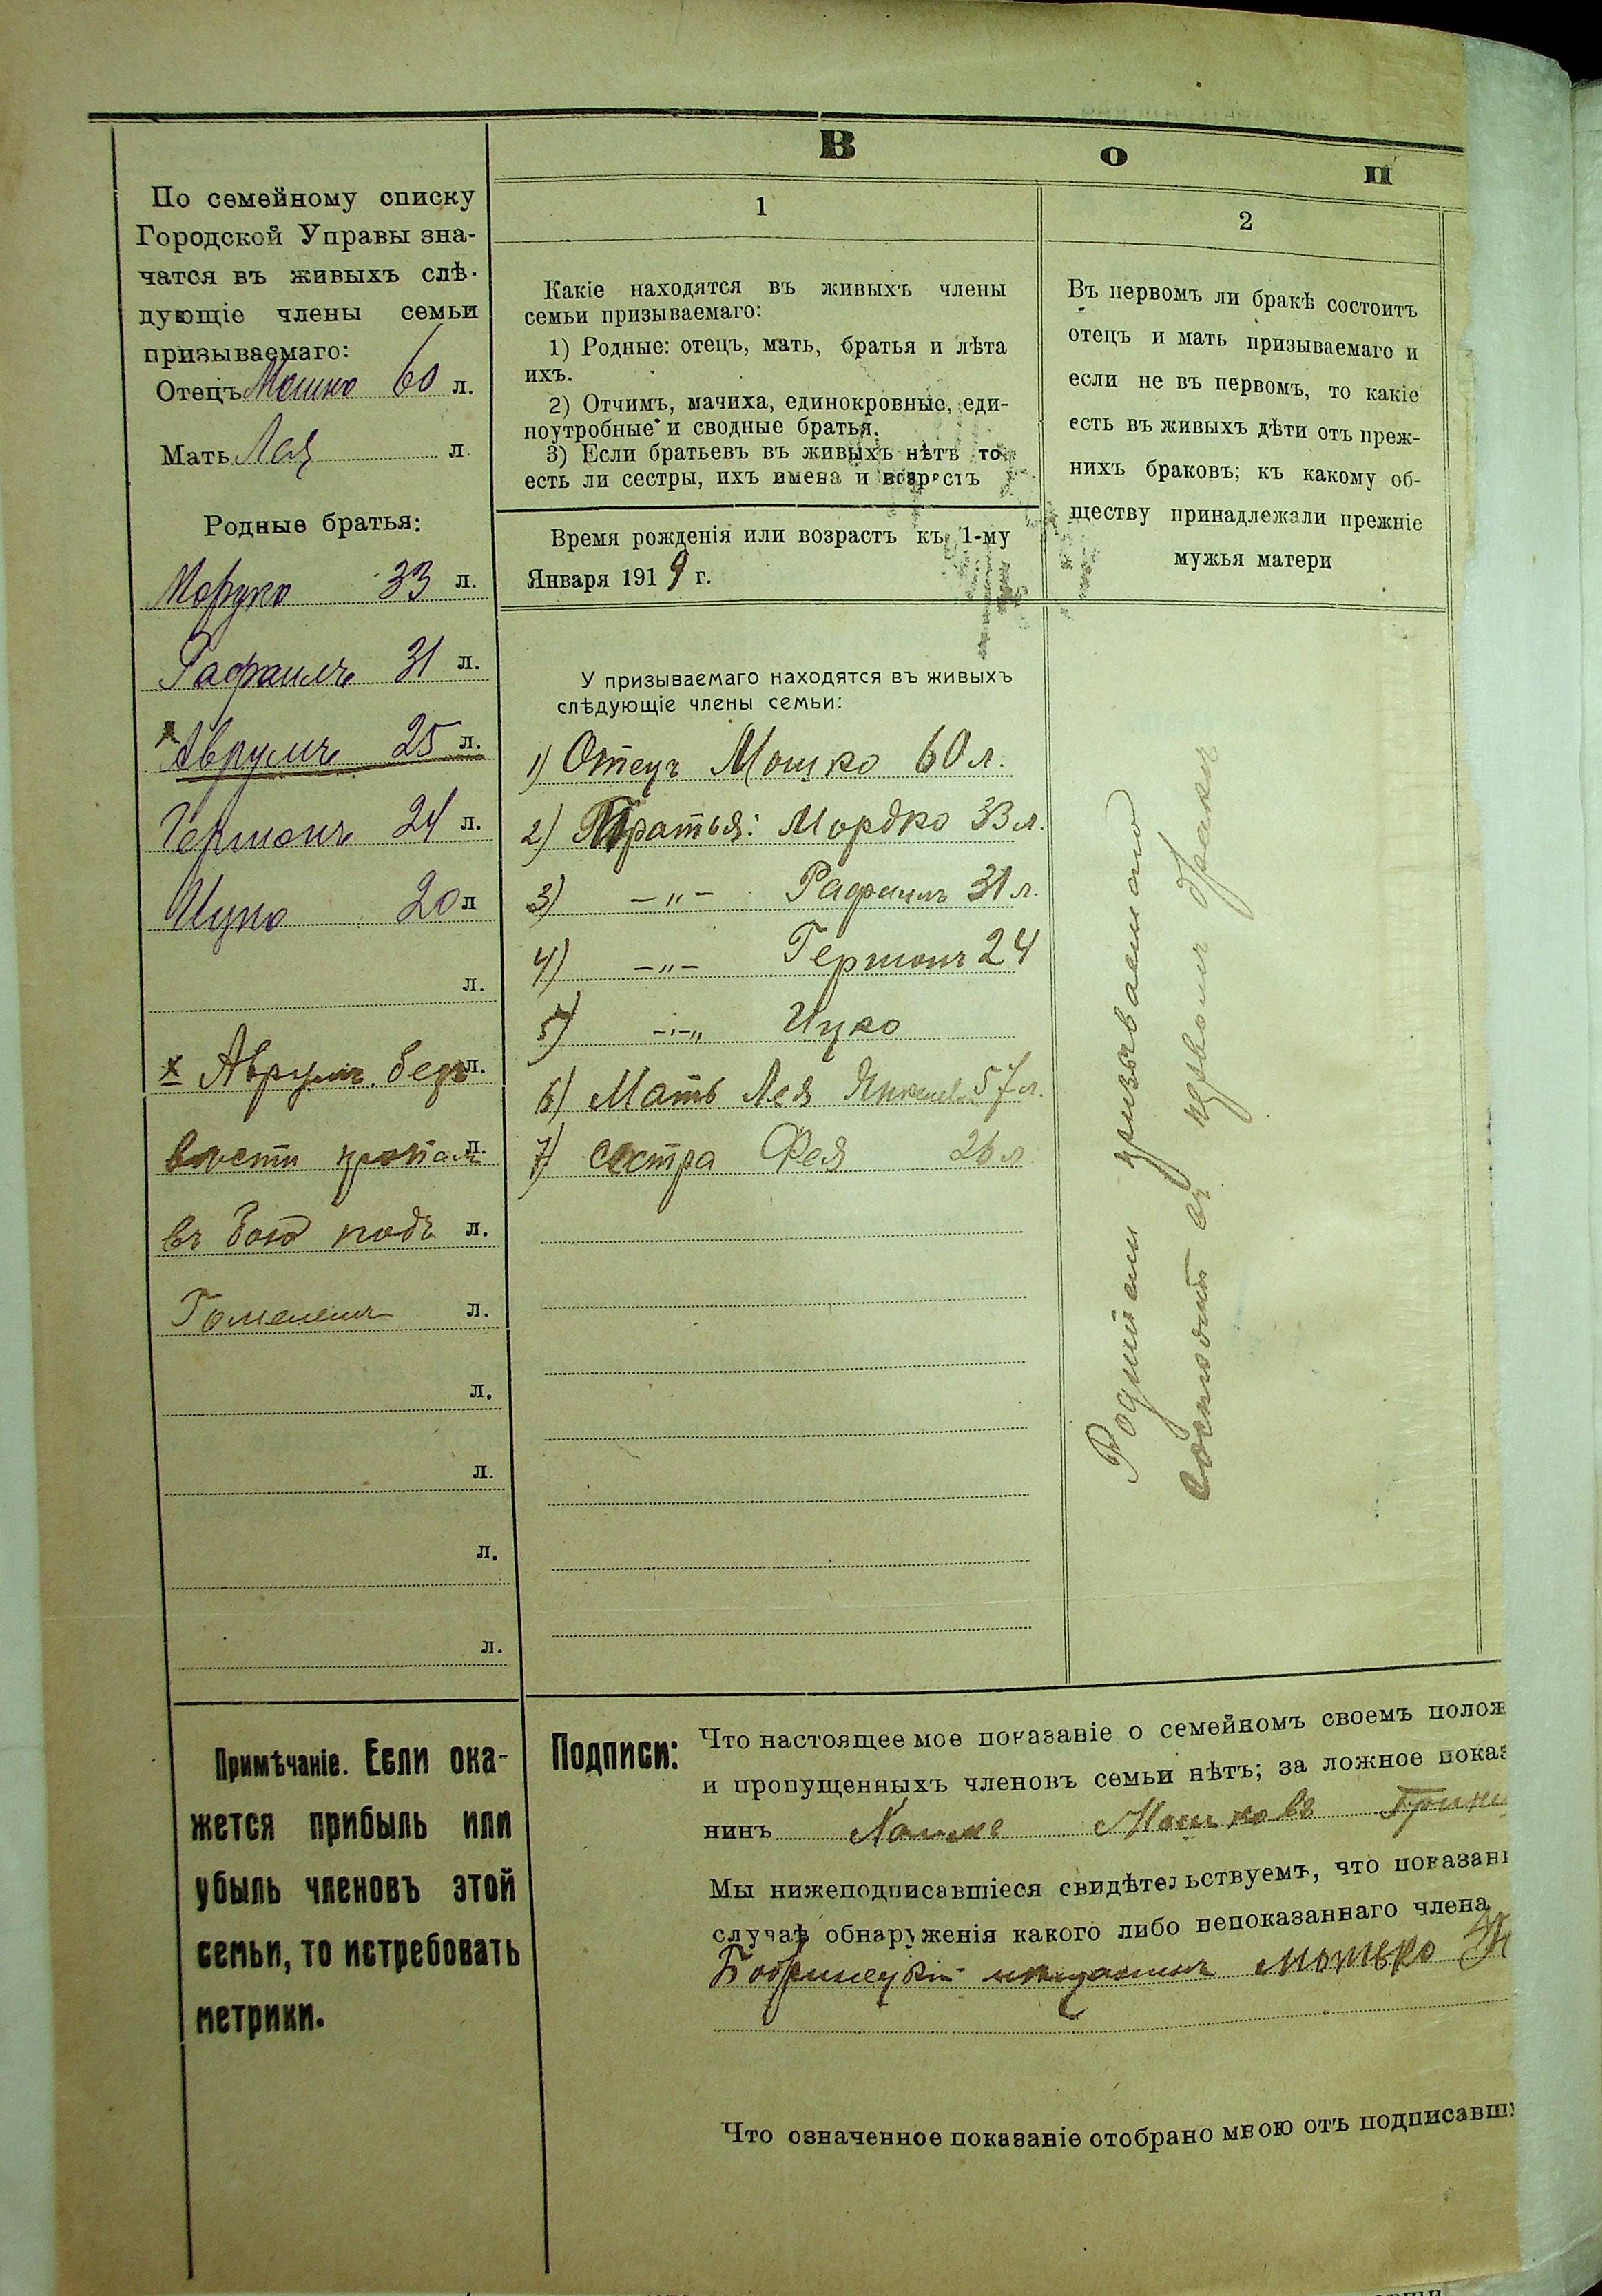 В о п
По семейному списку
Городской Управы зна-
чатся въ живыхъ слѣ-
дующіе члены семьи
призываемаго:
Отецъ Мошко 60 л.
Мать Лея л.
Родные братья:
Мордко 33 л.
Рафаилъ 31 л.
х Аврумъ 25 л.
Гершонъ 24 л.
Ицко 20 л
л.
х Аврумъ безъ л.
вѣсти пропалъ л.
въ бою подъ л.
Гомелемъ л.
л.
л.
л.
л.
Примѣчаніе. Если ока-
жется прибыль или
убыль членовъ этой
семьи, то истребовать
метрики.
1
Какіе находятся въ живыхъ члены
семьи призываемаго:
1) Родные: отецъ, мать, братья и лѣта
ихъ.
2) Отчимъ, мачиха, единокровные, еди-
ноутробные и сводные братья.
3) Если братьевъ въ живыхъ нѣтъ то
есть ли сестры, ихъ имена и возрастъ
Время рожденія или возрастъ къ 1-му
Января 1919 г.
У призываемаго находятся въ живыхъ
слѣдующіе члены семьи:
1) Отецъ Мошко 60 л.
2) Братья: Мордко 33 л.
3) —„— Рафаилъ 31 л.
4) —„— Гершонъ 24
5) —„— Ицко
6) Мать Лея 57 л.
7) сестра Фея 26 л
2
Въ первомъ ли бракѣ состоитъ
отецъ и мать призываемаго и
если не въ первомъ, то какіе
есть въ живыхъ дѣти отъ преж-
нихъ браковъ; къ какому об-
ществу принадлежали прежніе
мужья матери
Родители призываемаго
состоятъ въ первомъ бракѣ
Подписи:
Что настоящее мое показаніе о семейномъ своемъ полож
и пропущенныхъ членовъ семьи нѣтъ; за ложное показ
нинъ Мошковъ
Мы нижеподписавшіеся свидѣтельствуемъ, что показані
случаѣ обнаруженія какого либо непоказаннаго члена
Бобринецкій мѣщанинъ Мотько
Что означенное показаніе отобрано мною отъ подписавши